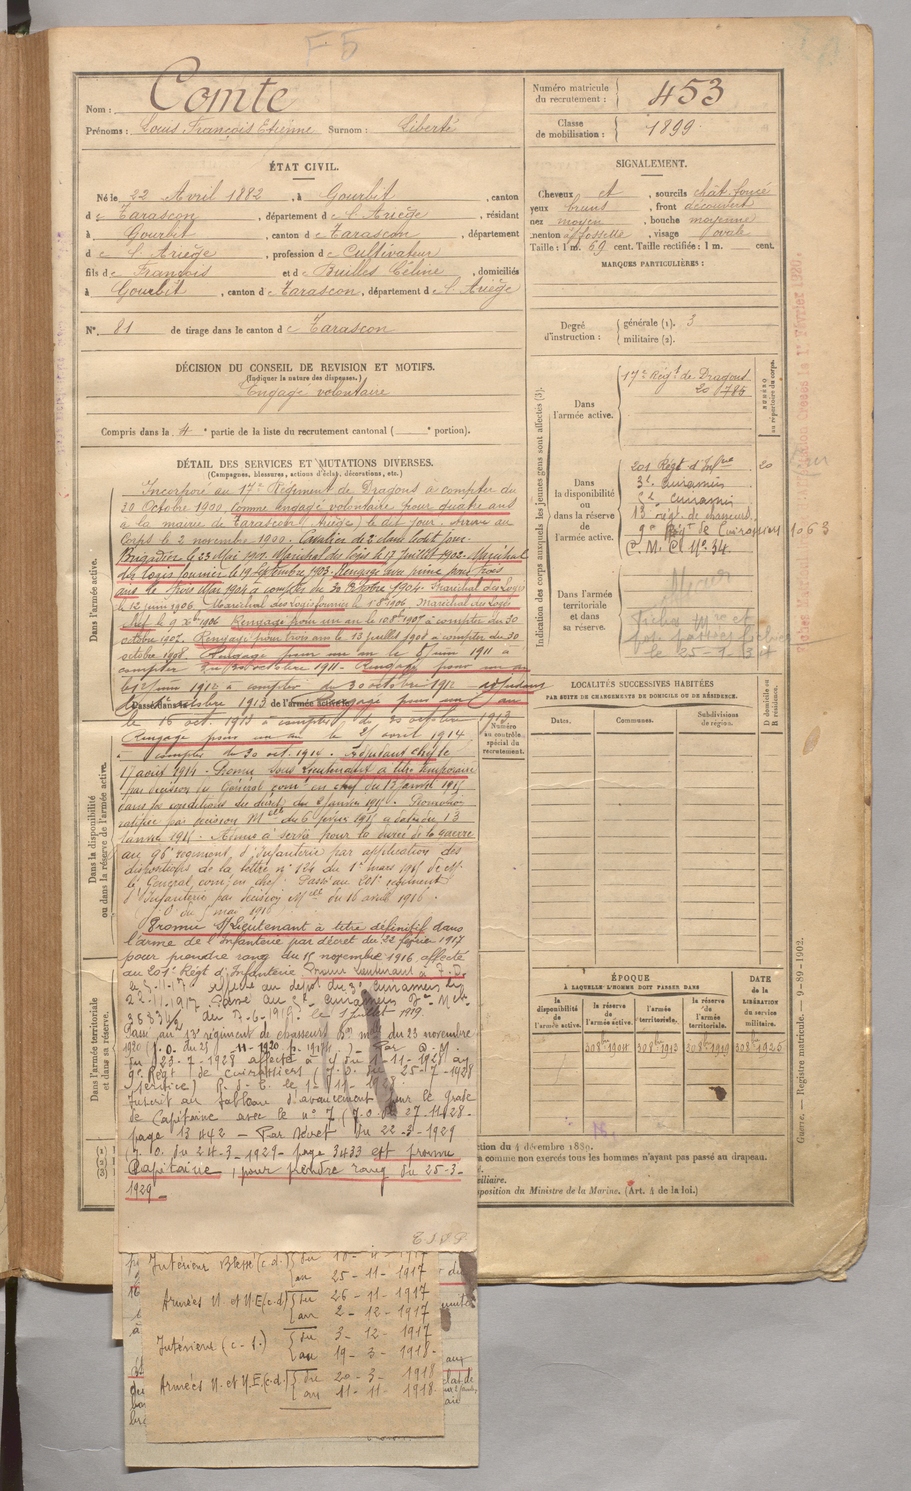 F5
Comte
Nom :
Prénoms : Louis François Etienne Surnom : Liberté
Numéro matricule du recrutement : 453
Classe de mobilisation : 1899
ÉTAT CIVIL.
Né le 22 Avril 1882, à Gourbit, canton
de Tarascon, département de l'Ariège, résidant
à Gourbit, canton de Tarascon, département
de l'Ariège, profession de Cultivateur
fils de François et de Builles Céline, domiciliés
à Gourbit, canton de Tarascon, département de l'Ariège
N° 81 de tirage dans le canton de Tarascon
SIGNALEMENT.
Cheveux et, sourcils chât. foncé
yeux bruns, front découvert
nez moyen, bouche moyenne
menton à fossette, visage ovale
Taille : 1 m. 69 cent. Taille rectifiée : 1 m. cent.
MARQUES PARTICULIÈRES :
Degré d'instruction : générale (1). 3
militaire (2).
DÉCISION DU CONSEIL DE REVISION ET MOTIFS.
(Indiquer la nature des dispenses.)
Engagé volontaire
Compris dans la 4e partie de la liste du recrutement cantonal ( e portion).
Indication des corps auxquels les jeunes gens sont affectés (3).
Dans l'armée active.
17e Régt de Dragons
Dans la disponibilité ou dans la réserve de l'armée active.
201 Régt d'Infrie 20
13 régt de chasseurs
9e Régt de Cuirassiers 1063
C. M. Cl N° 34.
Dans l'armée territoriale et dans sa réserve.
le 25-1-3
DÉTAIL DES SERVICES ET MUTATIONS DIVERSES.
(Campagnes, blessures, actions d'éclat, décorations, etc.)
Dans l'armée active.
Incorporé au 17e Régiment de Dragons à compter du
20 Octobre 1900, comme engagé volontaire pour quatre ans
à la mairie de Tarascon (Ariège) le dit jour. Arrivé au
Corps le 2 novembre 1900. Cavalier de 2e classe le dit jour.
Brigadier le 23 Mai 1901. Maréchal des logis le 17 Juillet 1902. Maréchal
des logis fourrier le 19 Septembre 1903. Rengagé avec prime pour trois
ans le trois Mai 1904 à compter du 30 Octobre 1904. Maréchal des Logis
le 12 juin 1906. Maréchal des Logis fourrier le 1906 Maréchal des Logis
chef le 9 Xbre 1906 Rengagé pour un an le 1907 à compter du 30
octobre 1907. Rengagé pour trois ans le 13 juillet 1908 à compter du 30
octobre 1908. Rengagé pour un an le 8 juin 1911 à
compter du 30 octobre 1911. Rengagé pour un an
le 12 juin 1912 à compter du 30 octobre 1912 adjudant
octobre 1913 Rengagé pour un an
Passé dans la réserve de l'armée active le
le 16 oct. 1913 à compter du 30 octobre 1913
Rengagé pour un an le 25 avril 1914
à compter du 30 oct. 1914. Adjudant chef le
17 août 1914. Promu sous Lieutenant à titre temporaire
par décision du Général comt en chef du 13 janvier 1915
dans les conditions du décret du 2 janvier 1915. Promotion
ratifiée par décision Mlle du 6 février 1915 à dater du 13
janvier 1915. Admis à servir pour la durée de la Guerre
au 96e régiment d'Infanterie par application des
dispositions de la lettre n° 124 du 1er mars 1915 de Mr
le Général com. en chef. Passé au 201e régiment
d'Infanterie par décision Mlle du 16 avril 1916.
Dans la disponibilité ou dans la réserve de l'armée active.
Promu s/Lieutenant à titre définitif dans
l'arme de l'Infanterie par décret du 22 février 1917
pour prendre rang du 15 novembre 1916 affecté
au 201e Régt d'Infanterie Promu Lieutenant à T.D.
22-11-1917 Passé au
le 1 juillet 1919
Passé au 13e régiment de chasseurs Don mlle du 23 novembre
1920
du 23-7-1928 affecté à du 1-11-1928 au
9e Régt de Cuirassiers (J.O. du 25-7-1928
(service) R. d. C. le 1-11-1928.
Inscrit au tableau d'avancement pour le grade
de Capitaine avec le n° 7 (J.O. du 27-11-28-
page 13442 - Par Décret du 22-3-1929
(J.O. du 24-3-1929 - page 3433 est promu
Capitaine, pour prendre rang du 25-3-
1929
Dans l'armée territoriale et dans sa réserve.
Numéro au contrôle spécial du recrutement.
LOCALITÉS SUCCESSIVES HABITÉES
PAR SUITE DE CHANGEMENTS DE DOMICILE OU DE RÉSIDENCE.
Dates. Communes. Subdivisions de région. D domicile ou R résidence.
ÉPOQUE
À LAQUELLE L'HOMME DOIT PASSER DANS
la disponibilité de l'armée active. la réserve de l'armée active. l'armée territoriale. la réserve de l'armée territoriale.
DATE de la LIBÉRATION du service militaire.
30 8bre 1904 30 8bre 1913 30 8bre 1919 30 8bre 1926
ction du 4 décembre 1889.
a comme non exercés tous les hommes n'ayant pas passé au drapeau.
ciliaire.
sposition du Ministre de la Marine. (Art. 4 de la loi.)
Guerre. — Registre matricule. — 9-89-1902.
Intérieur Blessé (c.d.) du
au 25-11-1917
Armées N. et N.E (c.d.) du 26-11-1917
au 2-12-1917
Intérieur (c-s.) du 3-12-1917
au 19-3-1918.
Armées N. et N.E. (c.d.) du 20-3-1918
au 11-11-1918